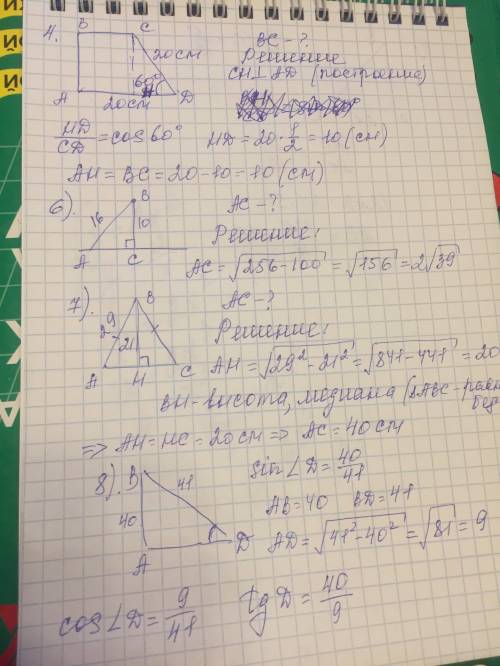 4.
B C
20см
60°
A 20см D
BC - ?
Решение
CH⊥AD (построение)
HD/CD = cos60° HD = 20·1/2 = 10 (см)
AH = BC = 20-10 = 10 (см)
6).
B
16 10
A C
AC - ?
Решение:
AC = √256-100 = √156 = 2√39
7).
B
29
21
A H C
AC - ?
Решение:
AH = √29²-21² = √841-441 = 20
BH - высота, медиана (ΔABC - равно
бед
⇒ AH = HC = 20см ⇒ AC = 40см
8).
B
41
40
A D
sin∠D = 40/41
AB = 40 BD = 41
AD = √41²-40² = √81 = 9
cos∠D = 9/41 tg D = 40/9